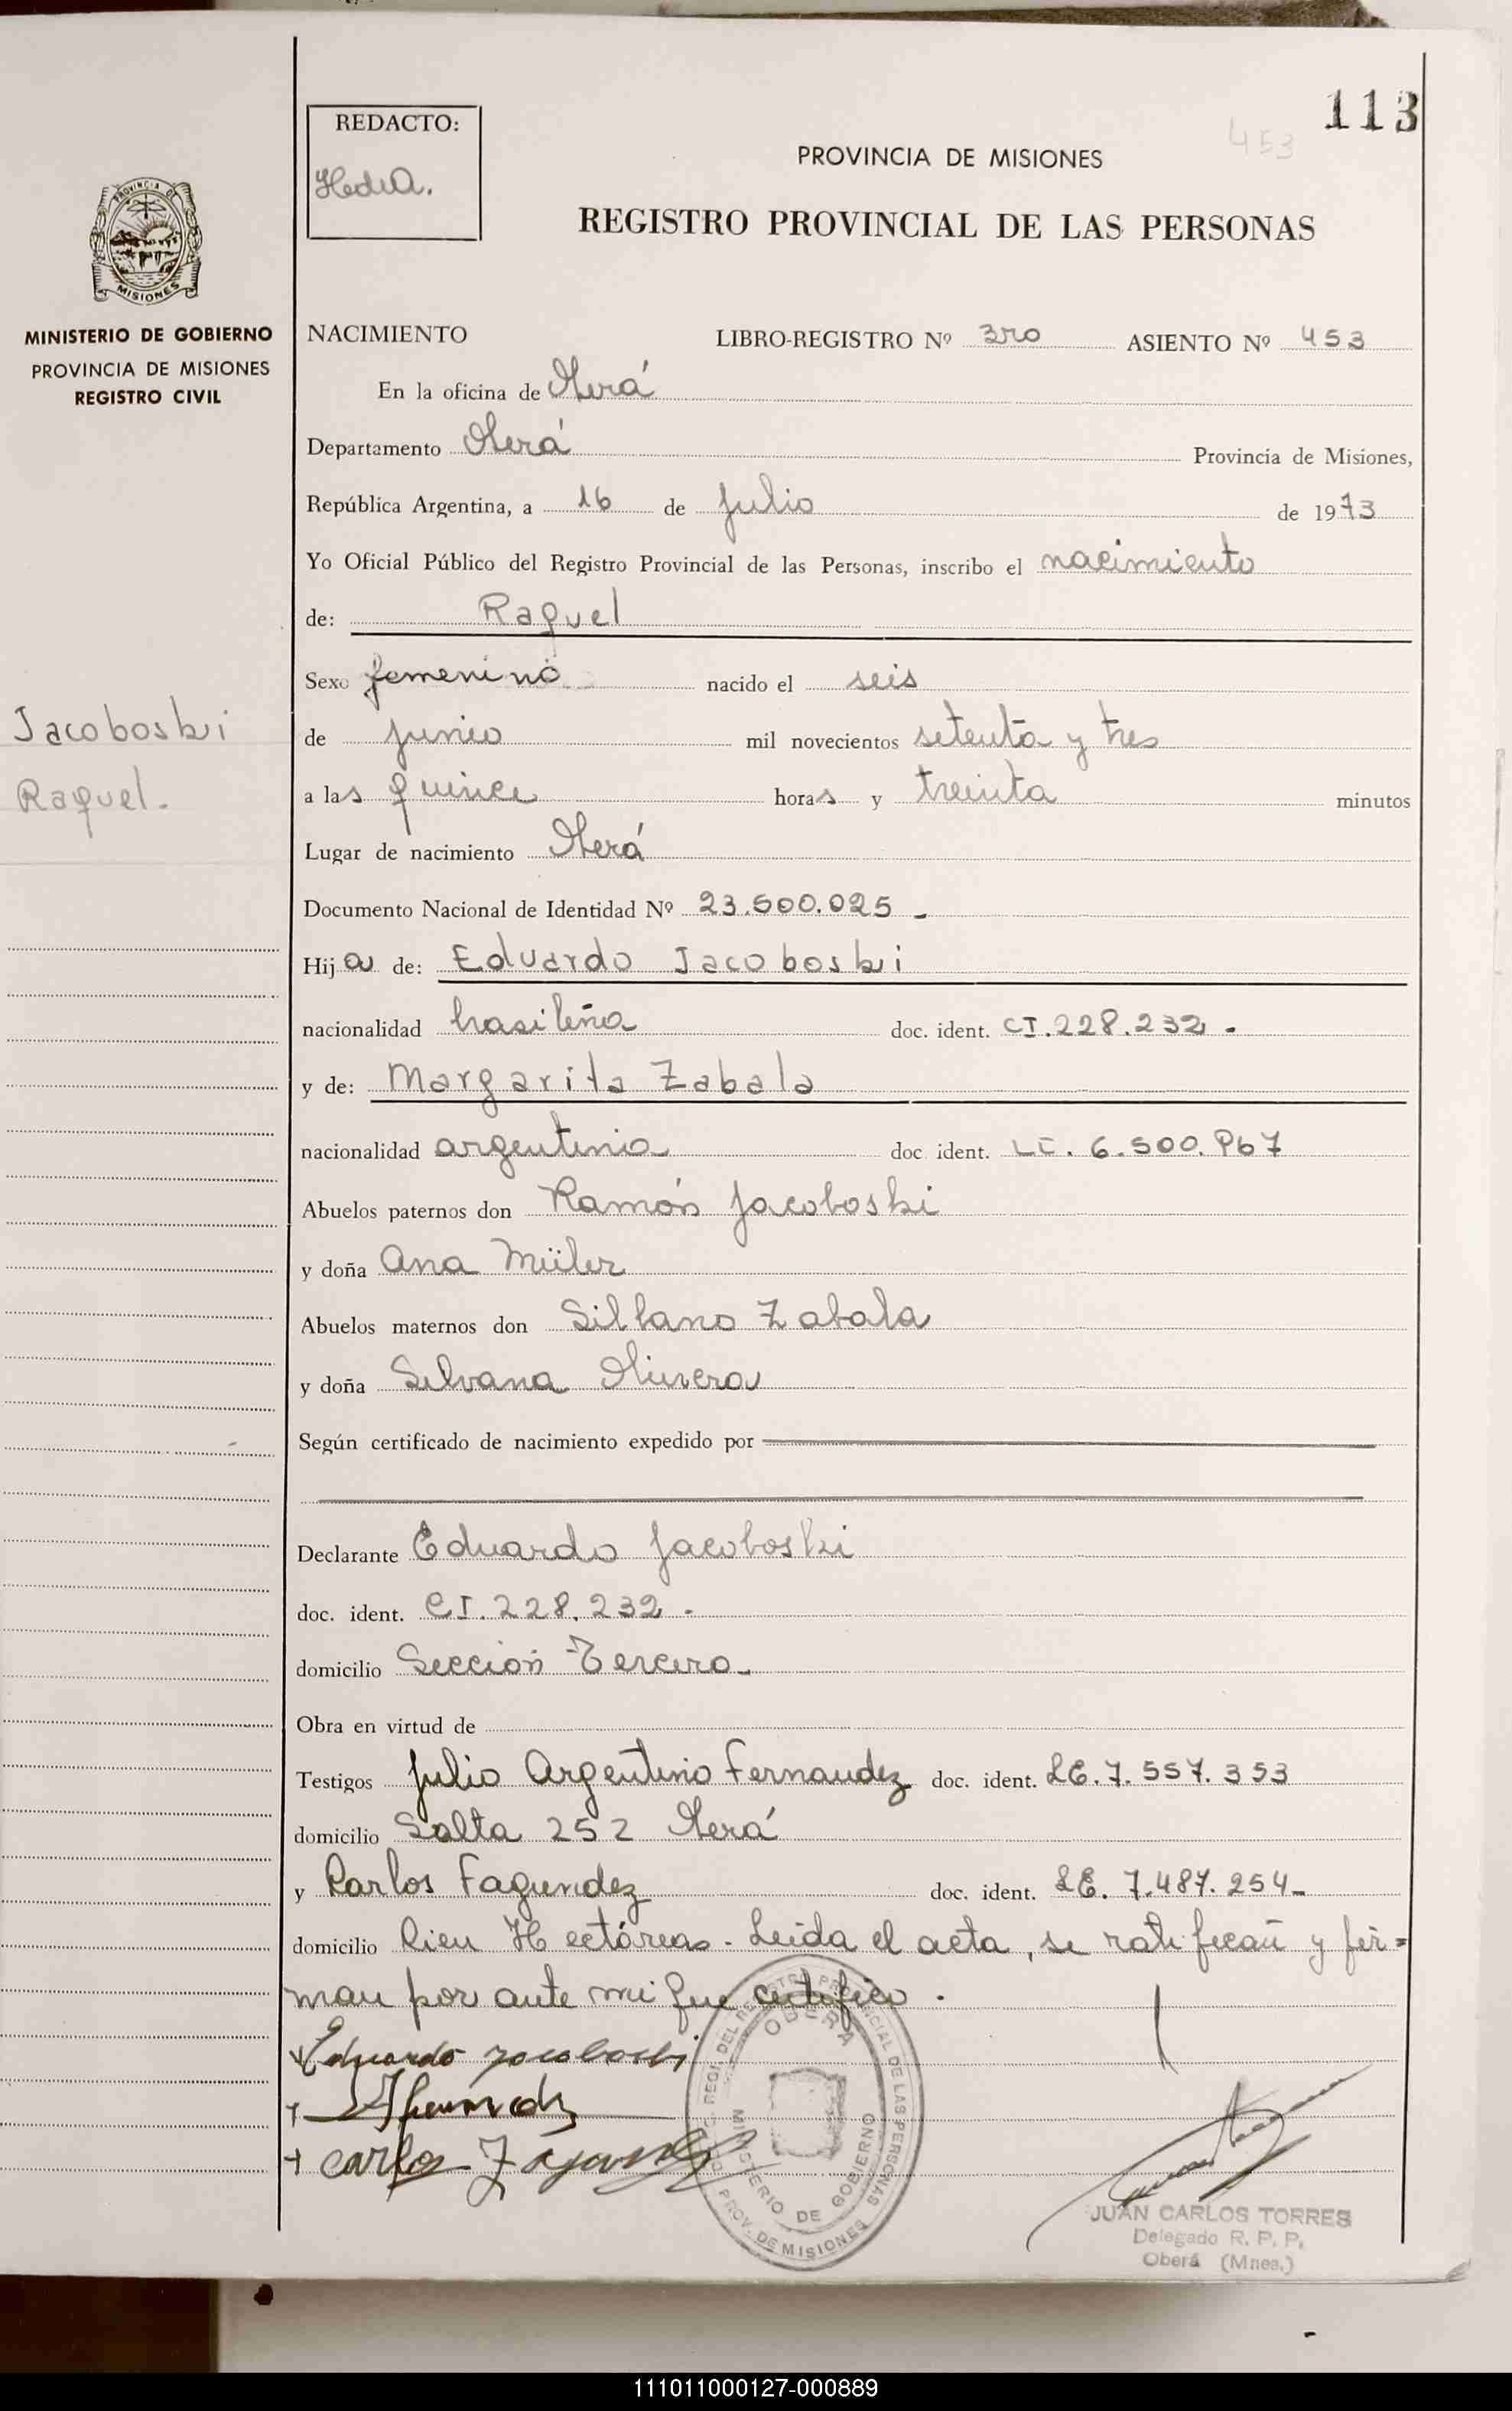 113
453
REDACTO:
PROVINCIA DE MISIONES
REGISTRO PROVINCIAL DE LAS PERSONAS
PROVINCIA DE
MISIONES
MINISTERIO DE GOBIERNO
PROVINCIA DE MISIONES
REGISTRO CIVIL
NACIMIENTO LIBRO-REGISTRO Nº 3ro ASIENTO Nº 453
En la oficina de Oberá
Departamento Oberá Provincia de Misiones,
República Argentina, a 16 de Julio de 1973
Yo Oficial Público del Registro Provincial de las Personas, inscribo el nacimiento
de: Raquel
Sexo femenino nacido el seis
Jacoboski
de junio mil novecientos setenta y tres
Raquel.
a las quince horas y treinta minutos
Lugar de nacimiento Oberá
Documento Nacional de Identidad Nº 23.500.025 -
Hija de: Eduardo Jacoboski
nacionalidad brasileña doc. ident. CI.228.232.-
y de: Margarita Zabala
nacionalidad argentina doc. ident. LC. 6.500.967
Abuelos paternos don Ramón Jacoboski
y doña Ana Müller
Abuelos maternos don Silbano Zabala
y doña Silvana Olivera
Según certificado de nacimiento expedido por
Declarante Eduardo Jacoboski
doc. ident. CI.228.232.-
domicilio Sección Tercera-
Obra en virtud de
Testigos Julio Argentino Fernandez doc. ident. LE.7.557.353
domicilio Salta 252 Oberá
y Carlos Fagundez doc. ident. LE. 7.487.254-
domicilio Cien Hectáreas - Leída el acta, se ratifican y fir=
man por ante mi que certifico.
Eduardo Jacoboski
Carlos
REGISTRO PROVINCIAL DE LAS PERSONAS
OBERA
MINISTERIO DE GOBIERNO
PROV. DE MISIONES
JUAN CARLOS TORRES
Delegado R. P. P.
Oberá (Mnes.)
111011000127-000889